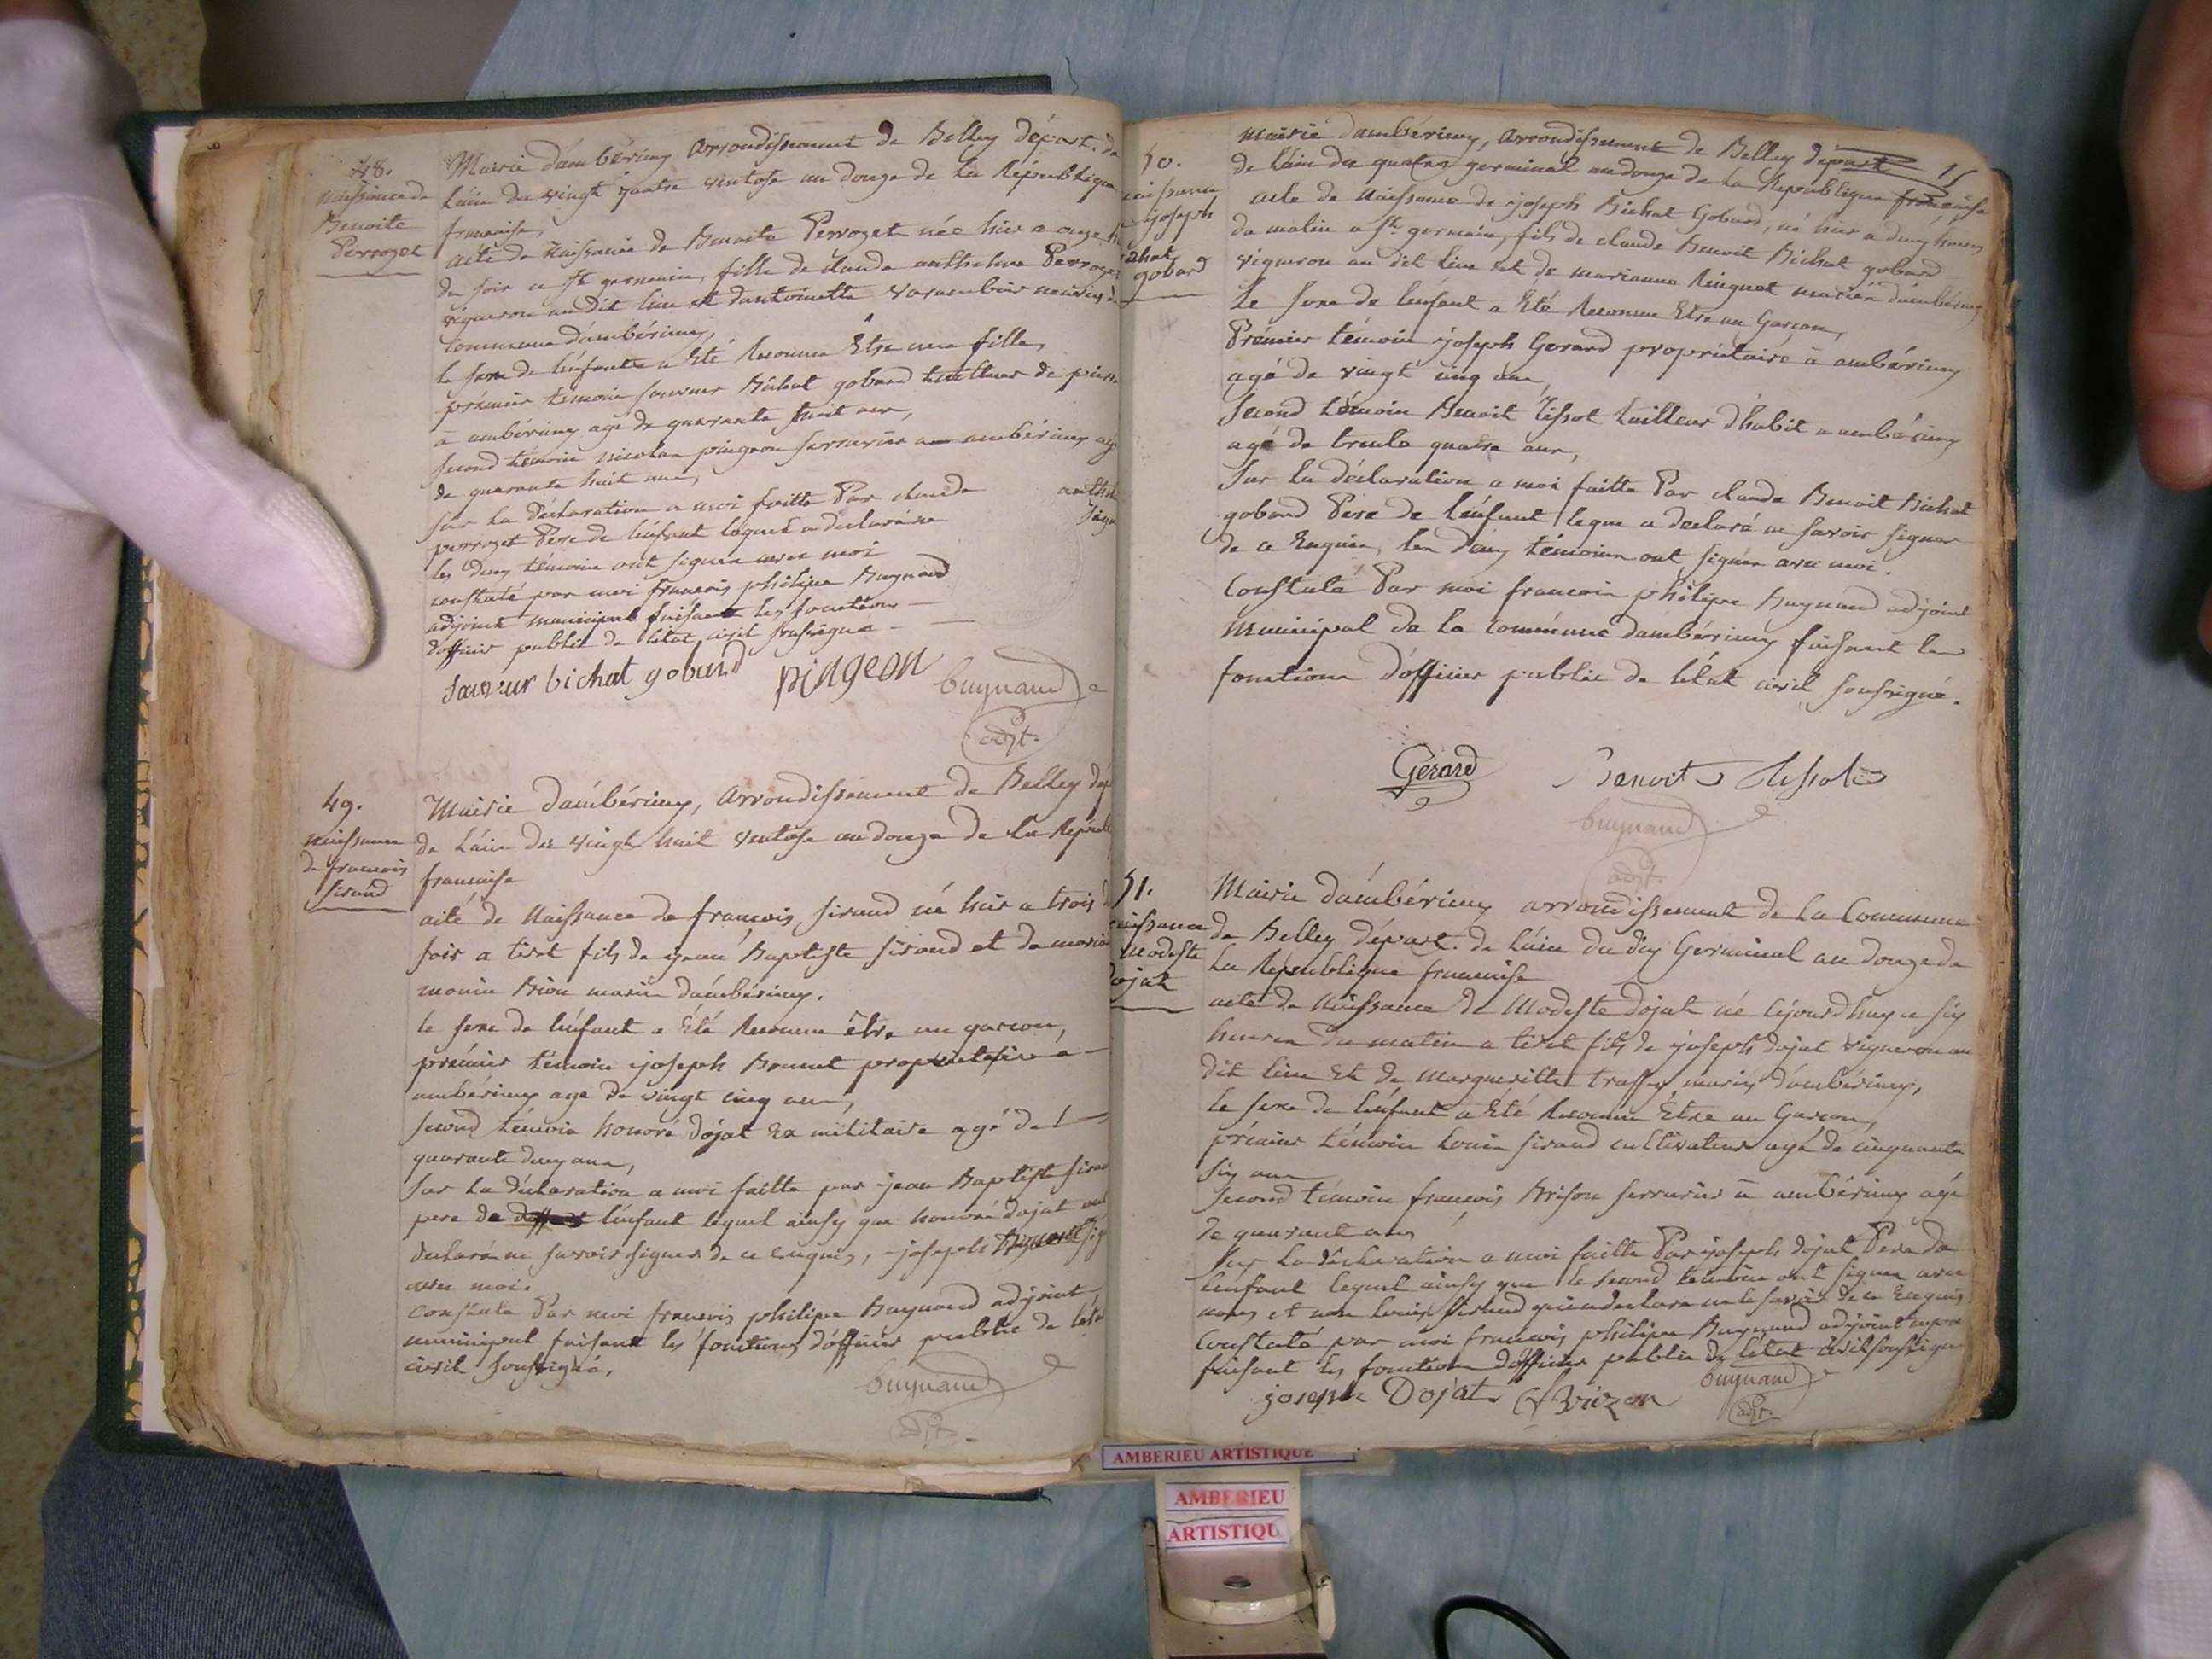 48.
naissance de
Benoite
Perrozet
Mairie d'ambérieux arrondissement de Belley départ. de
L'ain du vingt quatre ventose an douze de la République
francaise,
acte de Naissance de Benoite Perrozet née hier a onze h
du soir a St germain, fille de claude anthelme Perrozet
vigneron au dit lieu et d'antoinette mariés de
commune d'ambérieux,
le sexe de l'enfant a été Reconnu Etre une fille,
prémier témoin sauveur Bichat gobard tailleur de pierre
à ambérieux agé de quarante huit ans,
second témoin nicolas pingeon serrurier a ambérieux agé
de quarante huit ans,
sur la déclaration a moi faitte Par claude anthel
perrozet Pere de l'enfant lequel a declaré ne sign
les deux témoins ont signés avec moi
constaté par moi francois philipe Buynand
adjoint municipal faisant les fonctions
d'officier public de l'état civil soussigné
sauveur bichat gobard pingeon buynand
adjt.
49.
naissance
de francois
sirand
Mairie d'ambérieux, arrondissement de Belley dép
de L'ain du vingt huit ventose an douze de la Républ
francaise
acte de Naissance de francois sirand né hier a trois
soir a tiret fils de jean Baptiste sirand et de maria
monin Bion mariés d'ambérieux.
le sexe de l'enfant a été Reconnu être un garcon,
prémier témoin joseph Bonnet propriétaire a
ambérieux agé de vingt cinq ans,
second témoin honoré dojat Ex militaire agé de
quarante deux ans,
sur la déclaration a moi faitte par jean Baptiste siran
pere de l'enfant lequel ainsy que honoré dojat ont
declaré ne savoir signer de ce enquis, joseph sig
avec moi.
constaté Par moi francois philipe Buynand adjoint
municipal faisant les fonctions d'officier public de l'éta
civil soussigné,
buynand
adjt.
50.
naissance
joseph
chat
gobard
15
mairie d'ambérieux, arrondissement de Belley départ
de l'ain du quatre germinal an douze de la Republique francaise
acte de naissance de joseph Bichat Gobard, né hier a deux heures
du matin a St. germain, fils de claude Benoit Bichat gobard
vigneron au dit lieu et de marianne Ringuet mariés d'ambérieux
Le sexe de l'enfant a Eté Reconnu Etre un Garcon,
Prémier témoin joseph Gerard propriétaire à ambérieux
agé de vingt cinq ans,
second témoin Benoit Tissot tailleur d'habit a ambérieux
agé de trente quatre ans,
Sur la déclaration a moi faitte Par claude Benoit Bichat
gobard Pere de l'enfant leque a declaré ne savoir signer
de ce Enquis, les deux témoins ont signés avec moi.
Constaté Par moi francois philipe Buynand adjoint
Municipal de la commune d'ambérieux faisant les
fonctions d'officier public de l'état civil soussigné.
Gérard Benoit tissot
buynand
adjt.
51.
naissance
modeste
dojat
Mairie d'ambérieux arrondissement de la Commune
de Belley départ. de L'ain du dix Germinal an douze de
La République francaise
acte de Naissance de Modeste dojat né cejourd'huy a six
heures du matin a tiret fils de joseph dojat vigneron au
dit lieu Et de margueritte traffey mariés d'ambérieux,
le sexe de l'enfant a été Reconnu Etre un Garcon,
prémier témoin Louis sirand cultivateur agé de cinquante
six ans
second témoin francois Brison serrurier à ambérieux agé
de quarant ans
sur la déclaration a moi faitte Par joseph dojat Pere de
l'enfant lequel ainsy que le second témoin ont signés avec
nous et non Louis sirand qui a declaré ne le savoir de ce Enquis
Constaté par moi francois philipe Buynand adjoint
faisant les fonctions d'officier public de l'état civil soussigné
joseph Dojat f Brizon buynand
adjt.
AMBERIEU ARTISTIQUE
AMBERIEU
ARTISTIQU